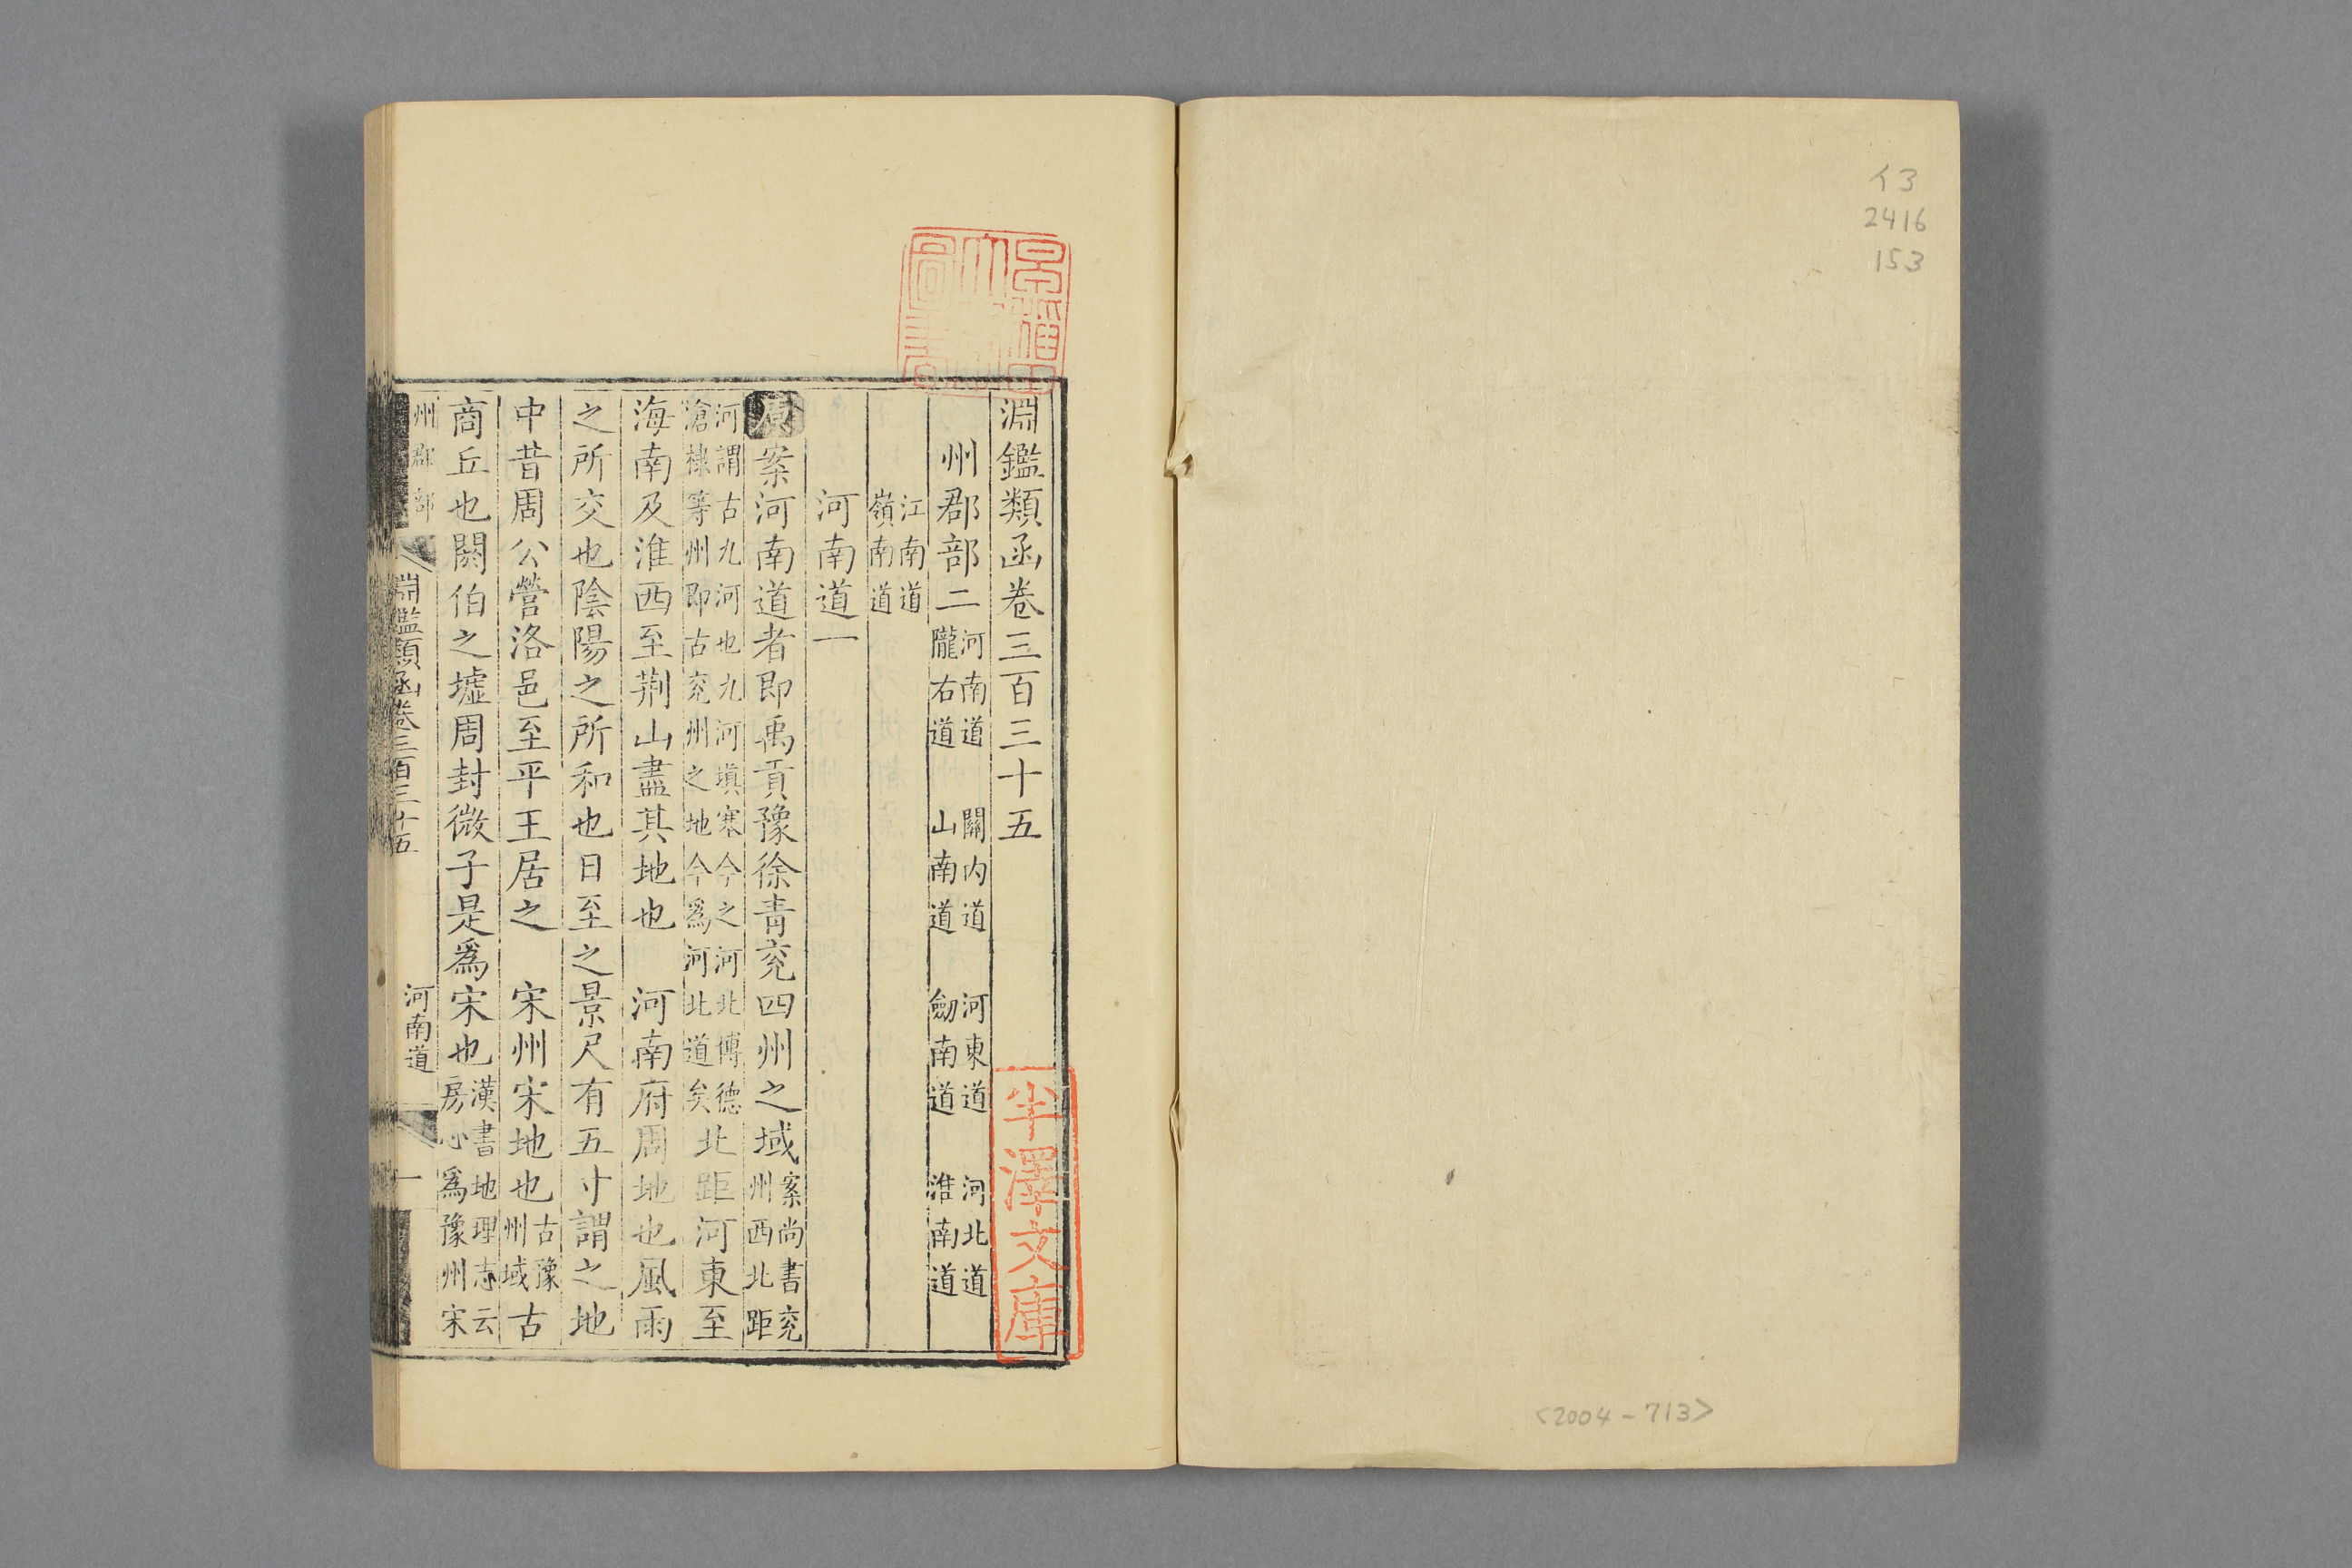 イ3
2416
153
<2004-713>
淵鑑類函卷三百三十五
州郡部二 河南道 關内道 河東道 河北道
隴右道 山南道 劒南道 淮南道
江南道
嶺南道
河南道一
原 案河南道者即禹貢豫徐青兖四州之域 案尚書兖
州西北距
河謂古九河也九河塡塞今之河北傅德
滄棣等州即古兖州之地今爲河北道矣 北距河東至
海南及淮西至荆山盡其地也 河南府周地也風雨
之所交也陰陽之所和也日至之景尺有五寸謂之地
中昔周公營洛邑至平王居之 宋州宋地也 古豫
州域 古
商丘也閼伯之墟周封微子是爲宋也 漢書地理志云
房心爲豫州宋
州郡部
淵鑑類函卷三百三十五
河南道
一
早稻田大學圖書
半澤文庫